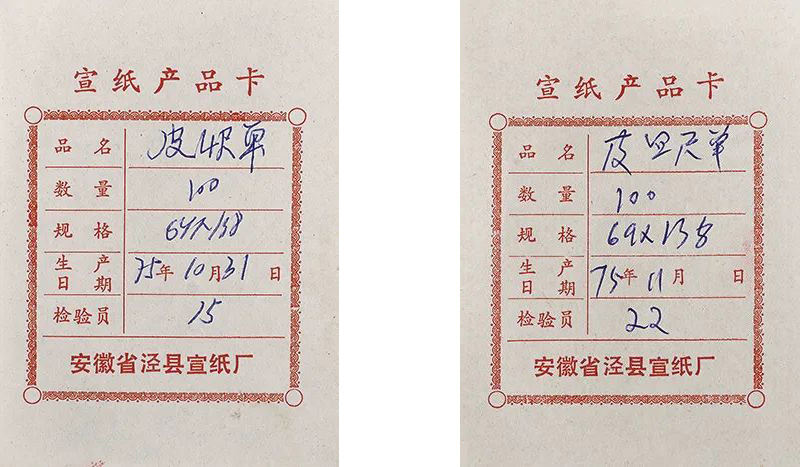 宣纸产品卡
品名 皮4尺单
数量 100
规格 69×138
生产日期 75年10月31日
检验员 15
安徽省泾县宣纸厂
宣纸产品卡
品名 皮四尺单
数量 100
规格 69×138
生产日期 75年11月 日
检验员 22
安徽省泾县宣纸厂